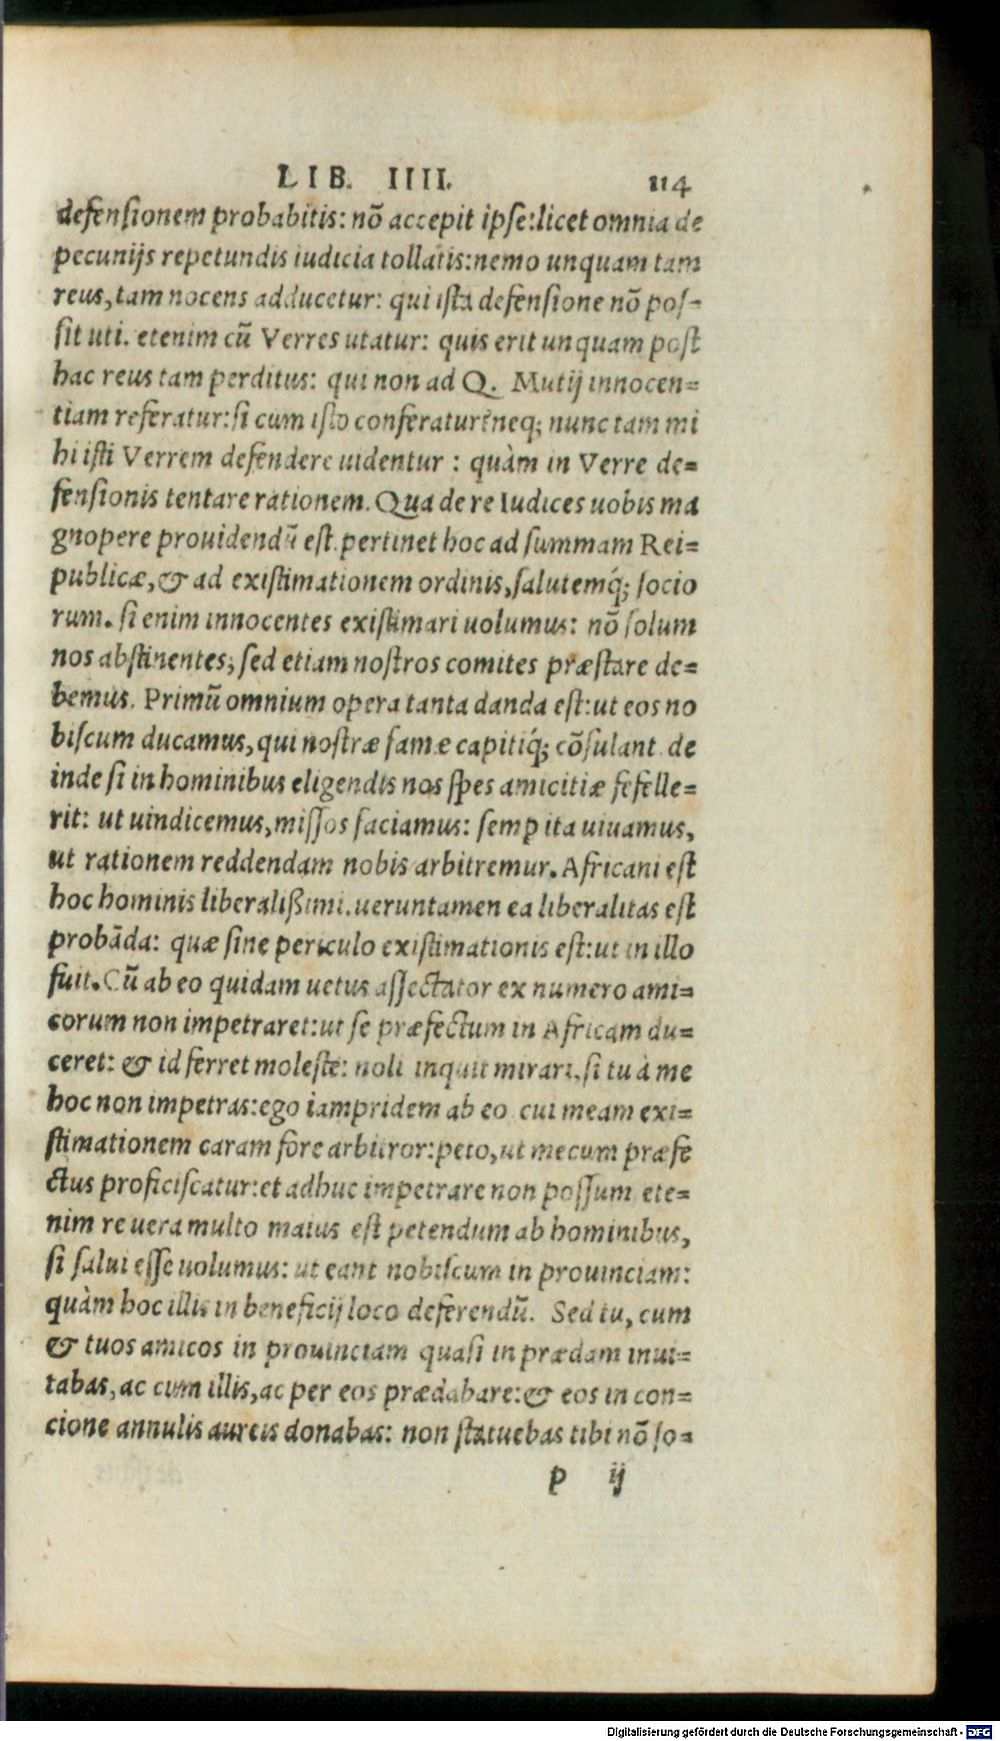 LIB. IIII. 114
defensionem probabitis: nõ accepit ipse: licet omnia de
pecunijs repetundis iudicia tollatis: nemo unquam tam
reus, tam nocens adducetur: qui ista defensione nõ pos-
sit uti. etenim cũ Verres utatur: quis erit unquam post
hac reus tam perditus: qui non ad Q. Mutij innocen=
tiam referatur: si cum isto conferatur? neq; nunc tam mi
hi isti Verrem defendere uidentur : quàm in Verre de=
fensionis tentare rationem. Qua de re Iudices uobis ma
gnopere prouidendũ est. pertinet hoc ad summam Rei=
publicæ, & ad existimationem ordinis, salutemq́; socio
rum. si enim innocentes existimari uolumus: nõ solum
nos abstinentes; sed etiam nostros comites præstare de=
bemus. Primũ omnium opera tanta danda est: ut eos no
biscum ducamus, qui nostræ famæ capitiq́; cõsulant. de
inde si in hominibus eligendis nos spes amicitiæ fefelle=
rit: ut uindicemus, missos faciamus: semꝑ ita uiuamus,
ut rationem reddendam nobis arbitremur. Africani est
hoc hominis liberalißimi. ueruntamen ea liberalitas est
probãda: quæ sine periculo existimationis est: ut in illo
fuit. Cũ ab eo quidam uetus assectator ex numero ami=
corum non impetraret: ut se præfectum in Africam du=
ceret: & id ferret moleste: noli inquit mirari, si tu à me
hoc non impetras: ego iampridem ab eo cui meam exi=
stimationem caram fore arbitror: peto, ut mecum præfe
ctus proficiscatur: et adhuc impetrare non possum. ete=
nim re uera multo maius est petendum ab hominibus,
si salui esse uolumus: ut eant nobiscum in prouinciam:
quàm hoc illis in beneficij loco deferendũ. Sed tu, cum
& tuos amicos in prouinciam quasi in prædam inui=
tabas, ac cum illis, ac per eos prædabare: & eos in con=
cione annulis aureis donabas: non statuebas tibi nõ so=
p ij
Digitalisierung gefördert durch die Deutsche Forschungsgemeinschaft - DFG